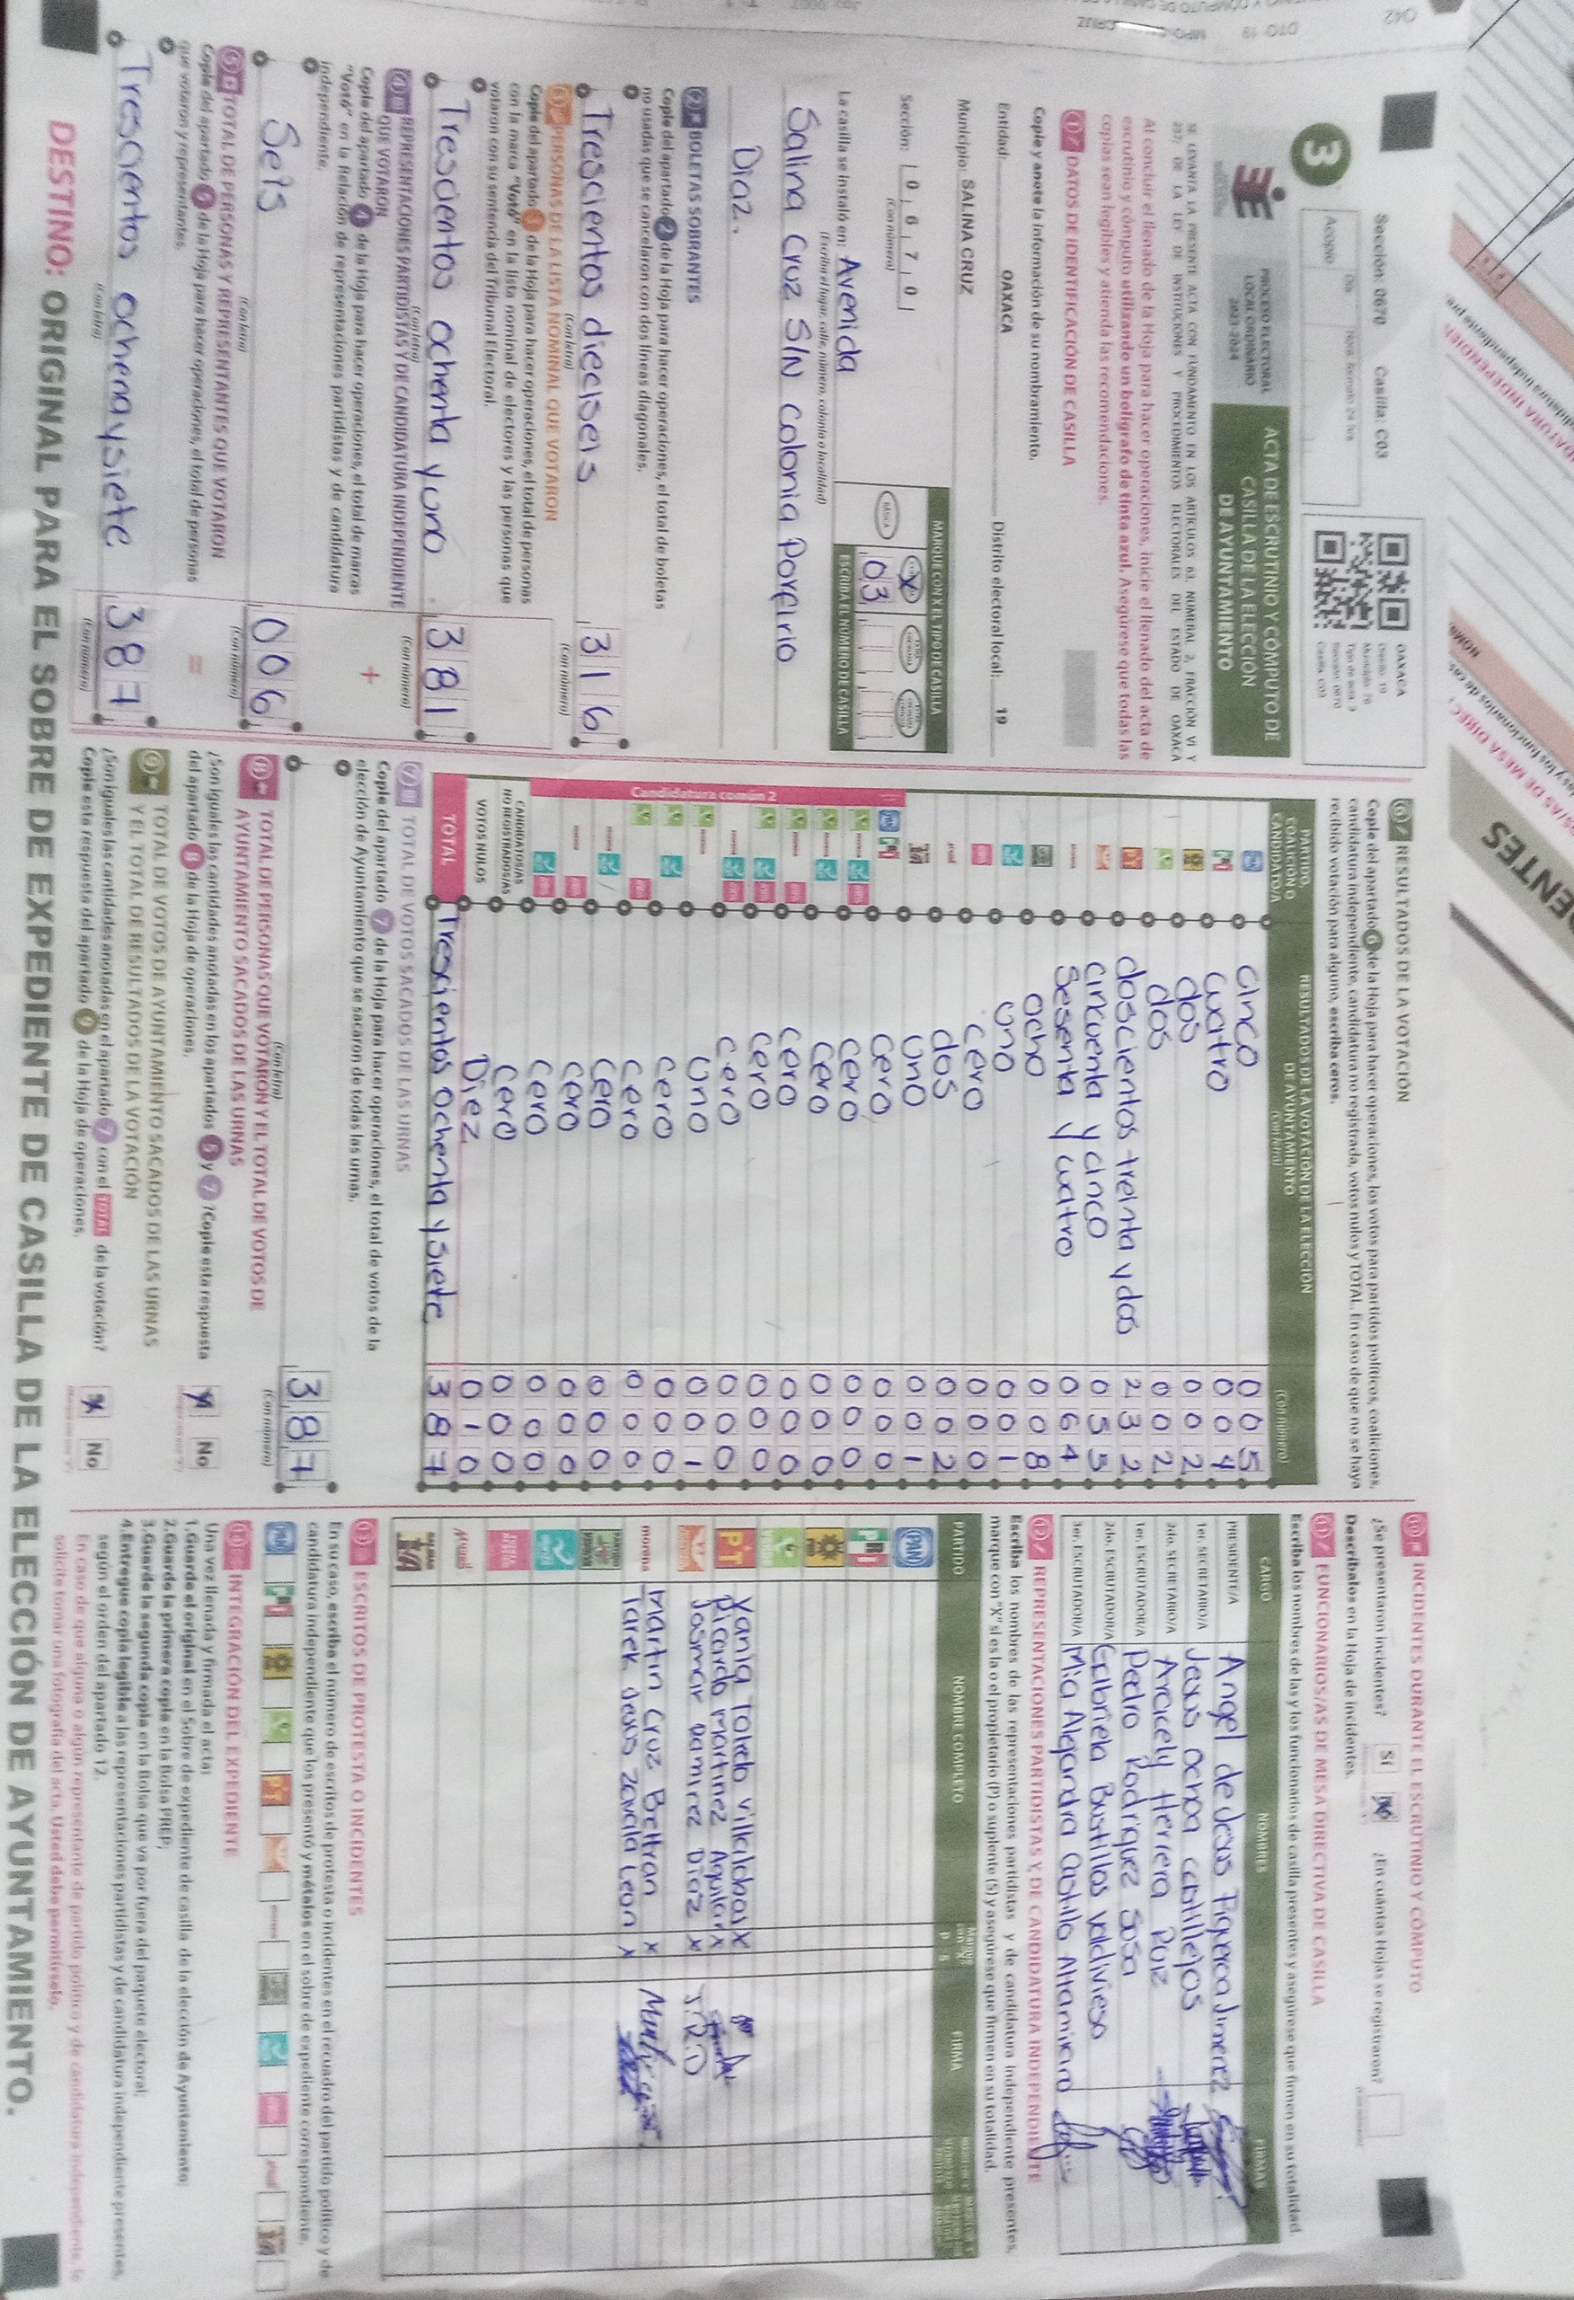 Sección: 0670 Casilla: C03
OAXACA
Distrito: 19
Municipio: 76
Tipo de acta: 3
Sección: 0670
Casilla: C03
3
Acopio
PROCESO ELECTORAL
LOCAL ORDINARIO
2023-2024
ACTA DE ESCRUTINIO Y CÓMPUTO DE
CASILLA DE LA ELECCIÓN
DE AYUNTAMIENTO
SE LEVANTA LA PRESENTE ACTA CON FUNDAMENTO EN LOS ARTÍCULOS 63, NUMERAL 2, FRACCIÓN VI Y
237; DE LA LEY DE INSTITUCIONES Y PROCEDIMIENTOS ELECTORALES DEL ESTADO DE OAXACA
Al concluir el llenado de la Hoja para hacer operaciones, inicie el llenado del acta de
escrutinio y cómputo utilizando un bolígrafo de tinta azul. Asegúrese que todas las
copias sean legibles y atienda las recomendaciones.
1 DATOS DE IDENTIFICACIÓN DE CASILLA
Copie y anote la información de su nombramiento.
Entidad: OAXACA Distrito electoral local: 19
Municipio: SALINA CRUZ
Sección: 0 6 7 0
(Con número)
MARQUE CON X EL TIPO DE CASILLA
BÁSICA X
ESCRIBA EL NÚMERO DE CASILLA
03
La casilla se instaló en: Avenida
(Escriba el lugar, calle, número, colonia o localidad)
Salina Cruz S/N Colonia Porfirio
Diaz.
2 BOLETAS SOBRANTES
Copie del apartado 2 de la Hoja para hacer operaciones, el total de boletas
no usadas que se cancelaron con dos líneas diagonales.
Trescientos dieciseis 316
(Con letra) (Con número)
3 PERSONAS DE LA LISTA NOMINAL QUE VOTARON
Copie del apartado 3 de la Hoja para hacer operaciones, el total de personas
con la marca "Votó" en la lista nominal de electores y las personas que
votaron con su sentencia del Tribunal Electoral.
Trescientos ochenta y uno 381
(Con letra) (Con número)
4 REPRESENTACIONES PARTIDISTAS Y DE CANDIDATURA INDEPENDIENTE
QUE VOTARON
Copie del apartado 4 de la Hoja para hacer operaciones, el total de marcas
"Votó" en la Relación de representaciones partidistas y de candidatura
independiente.
+
Seis 006
(Con letra) (Con número)
5 TOTAL DE PERSONAS Y REPRESENTANTES QUE VOTARON
Copie del apartado 5 de la Hoja para hacer operaciones, el total de personas
que votaron y representantes.
=
Trescientos ochenta y siete 387
(Con letra) (Con número)
6 RESULTADOS DE LA VOTACIÓN
Copie del apartado 6 de la Hoja para hacer operaciones, los votos para partidos políticos, coaliciones,
candidatura independiente, candidatura no registrada, votos nulos y TOTAL. En caso de que no se haya
recibido votación para alguno, escriba ceros.
PARTIDO, COALICIÓN O CANDIDATO/A
RESULTADOS DE LA VOTACIÓN DE LA ELECCIÓN
DE AYUNTAMIENTO
(Con letra) (Con número)
cinco 005
cuatro 004
dos 002
dos 002
doscientos treinta y dos 232
cincuenta y cinco 055
sesenta y cuatro 064
ocho 008
uno 001
cero 000
dos 002
uno 001
Candidatura común 2
cero 000
cero 000
cero 000
cero 000
cero 000
cero 000
uno 001
cero 000
cero 000
cero 000
cero 000
cero 000
CANDIDATOS/AS
NO REGISTRADOS/AS cero 000
VOTOS NULOS Diez 010
TOTAL Trescientos ochenta y siete 387
7 TOTAL DE VOTOS SACADOS DE LAS URNAS
Copie del apartado 7 de la Hoja para hacer operaciones, el total de votos de la
elección de Ayuntamiento que se sacaron de todas las urnas.
387
(Con letra) (Con número)
8 TOTAL DE PERSONAS QUE VOTARON Y EL TOTAL DE VOTOS DE
AYUNTAMIENTO SACADOS DE LAS URNAS
¿Son iguales las cantidades anotadas en los apartados 5 y 7? Copie esta respuesta
del apartado 8 de la Hoja de operaciones.
No
9 TOTAL DE VOTOS DE AYUNTAMIENTO SACADOS DE LAS URNAS
Y EL TOTAL DE RESULTADOS DE LA VOTACIÓN
¿Son iguales las cantidades anotadas en el apartado 7 con el TOTAL de la votación?
Copie esta respuesta del apartado 9 de la Hoja de operaciones.
No
10 INCIDENTES DURANTE EL ESCRUTINIO Y CÓMPUTO
¿Se presentaron incidentes? Sí No ¿En cuántas Hojas se registraron?
Descríbalos en la Hoja de incidentes.
11 FUNCIONARIOS/AS DE MESA DIRECTIVA DE CASILLA
Escriba los nombres de las y los funcionarios de casilla presentes y asegúrese que firmen en su totalidad.
CARGO NOMBRES FIRMAS
PRESIDENTE/A Angel de Jesus Figueroa Jimenez
1er. SECRETARIO/A Jesus Ochoa castillejos
2do. SECRETARIO/A Aracely Herrera Ruiz
1er. ESCRUTADOR/A Pedro Rodriguez Sosa
2do. ESCRUTADOR/A Gabriela Bustillos Valdivieso
3er. ESCRUTADOR/A Mia Alejandra Castillo Altamirano
12 REPRESENTACIONES PARTIDISTAS Y DE CANDIDATURA INDEPENDIENTE
Escriba los nombres de las representaciones partidistas y de candidatura independiente presentes,
marque con "X" si es la o el propietario (P) o suplente (S) y asegúrese que firmen en su totalidad.
PARTIDO NOMBRE COMPLETO P S FIRMA
PAN
PRI
PT Yania Toledo Villalobos X
Ricardo Martinez Aguilar X
Josmar Ramirez Diaz X J.R.D
morena Martin Cruz Beltran X
Tarek Jesus Zavala Leon X
13 ESCRITOS DE PROTESTA O INCIDENTES
En su caso, escriba el número de escritos de protesta o incidentes en el recuadro del partido político y de
candidatura independiente que los presentó y métalos en el sobre de expediente correspondiente.
INTEGRACIÓN DEL EXPEDIENTE
Una vez llenada y firmada el acta:
1. Guarde el original en el Sobre de expediente de casilla de la elección de Ayuntamiento;
2. Guarde la primera copia en la Bolsa PREP;
3. Guarde la segunda copia en la Bolsa que va por fuera del paquete electoral;
4. Entregue copia legible a las representaciones partidistas y de candidatura independiente presentes,
según el orden del apartado 12.
En caso de que alguna o algún representante de partido político y de candidatura independiente, le
solicite tomar una fotografía del acta. Usted debe permitírselo.
DESTINO: ORIGINAL PARA EL SOBRE DE EXPEDIENTE DE CASILLA DE LA ELECCIÓN DE AYUNTAMIENTO.